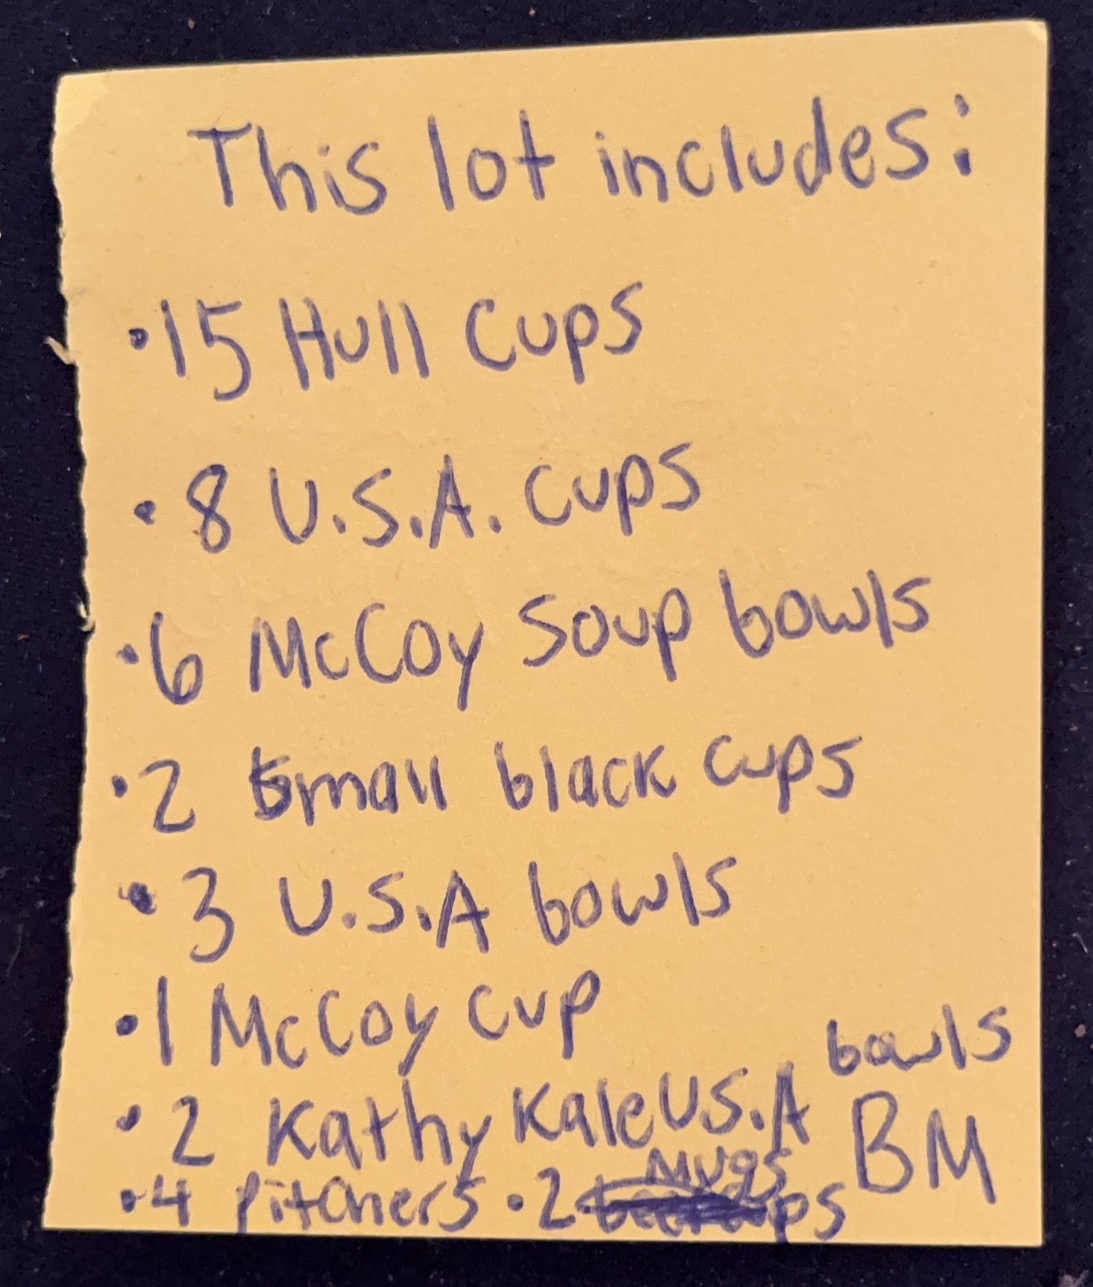 This lot includes:
•15 Hull Cups
•8 U.S.A. cups
•6 McCoy Soup bowls
•2 Small black cups
•3 U.S.A bowls
•1 McCoy cup
•2 Kathy Kale U.S.A bowls
BM
•4 Pitchers •2 Mugs